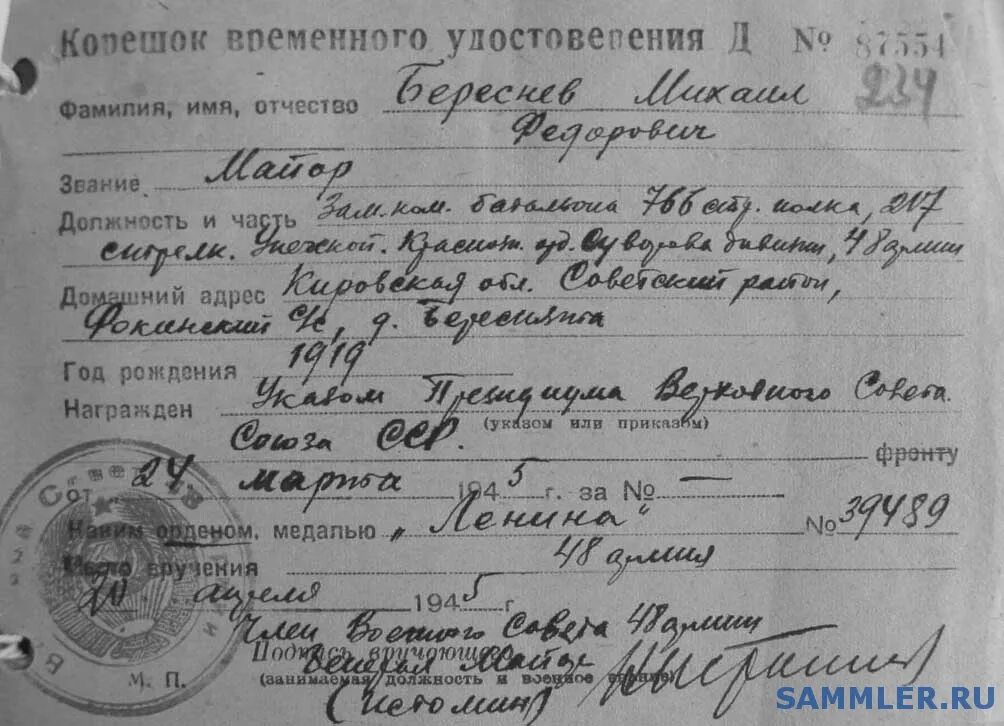 Корешок временного удостоверения Д № 87554
234
Фамилия, имя, отчество Береснев Михаил
Федорович
Звание Майор
Должность и часть Зам. ком. батальона 766 стр. полка, 217
стрелк. Унечской. Красноз. орд. Суворова дивизии, 48 армии
Домашний адрес Кировская обл. Советский район,
Фокинский с/с, д. Береснята
Год рождения 1919
Награжден Указом Президиума Верховного Совета
(указом или приказом)
Союза ССР. фронту
от 24 марта 1945 г. за № —
Каким орденом, медалью „Ленина" № 39489
Место вручения 48 армия
20 апреля 1945 г.
Член Военного Совета 48 армии
Подпись вручающего
Генерал Майор
(занимаемая должность и военное звание)
М. П. (Истомин)
SAMMLER.RU